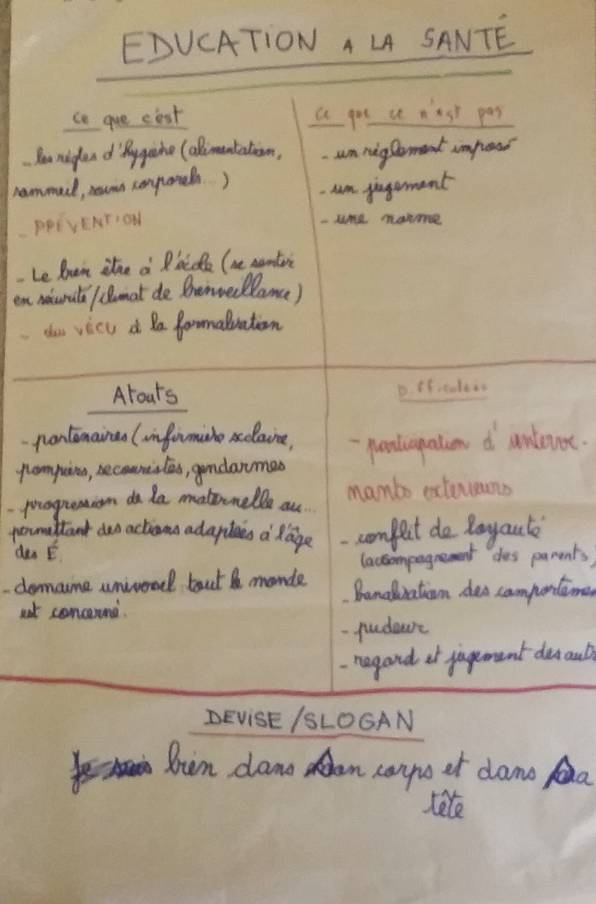 EDUCATION A LA SANTÉ
ce que c'est
- les règles d'hygiène (alimentation,
sommeil, soins corporels...)
- PRÉVENTION
- Le bien être à l'école (se sentir
en sécurité/climat de bienveillance)
- du VÉCU à la formalisation
ce que ce n'est pas
- un règlement imposé
- un jugement
- une norme
Atouts
- partenaires (infirmière scolaire,
pompiers, secouristes, gendarmes
- progression de la maternelle au...
permettant des actions adaptées à l'âge
des E.
- domaine universel tout le monde
est concerné.
Difficultés
- participation d'interve-
nants extérieurs
- conflit de loyauté
(accompagnement des parents)
- banalisation des comportemen
- pudeur
- regard et jugement des autr
DEVISE/SLOGAN
bien dans son corps et dans sa
tête